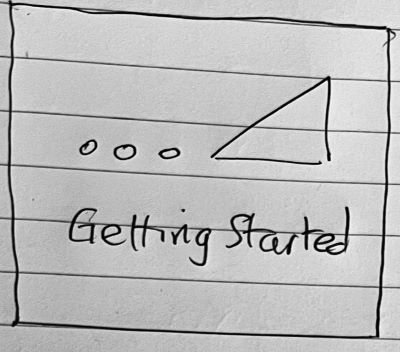 Getting Started